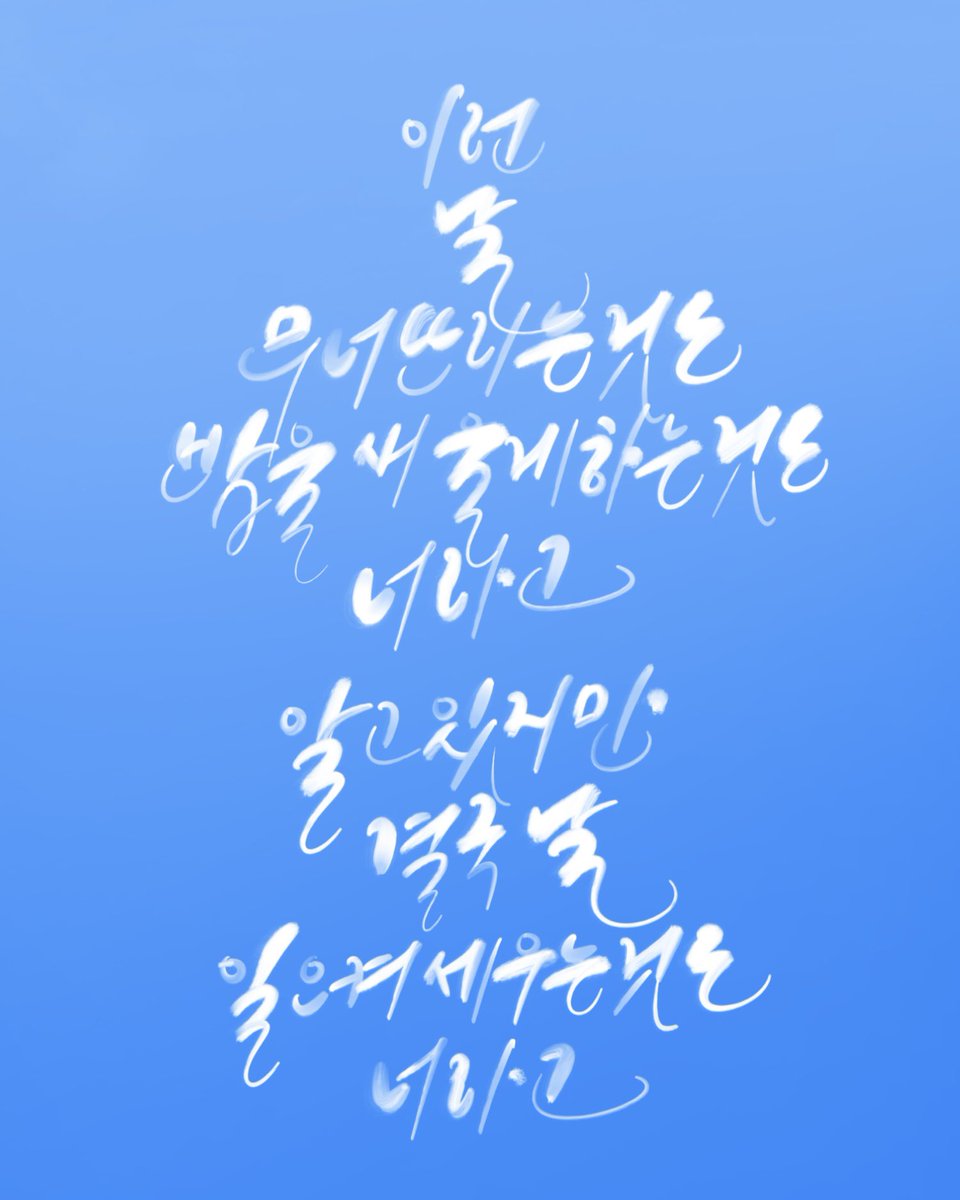 이런
날
무너뜨리는것도
밤을 새 울게하는것도
너라고
알고있지만
결국 날
일으켜 세우는것도
너라고